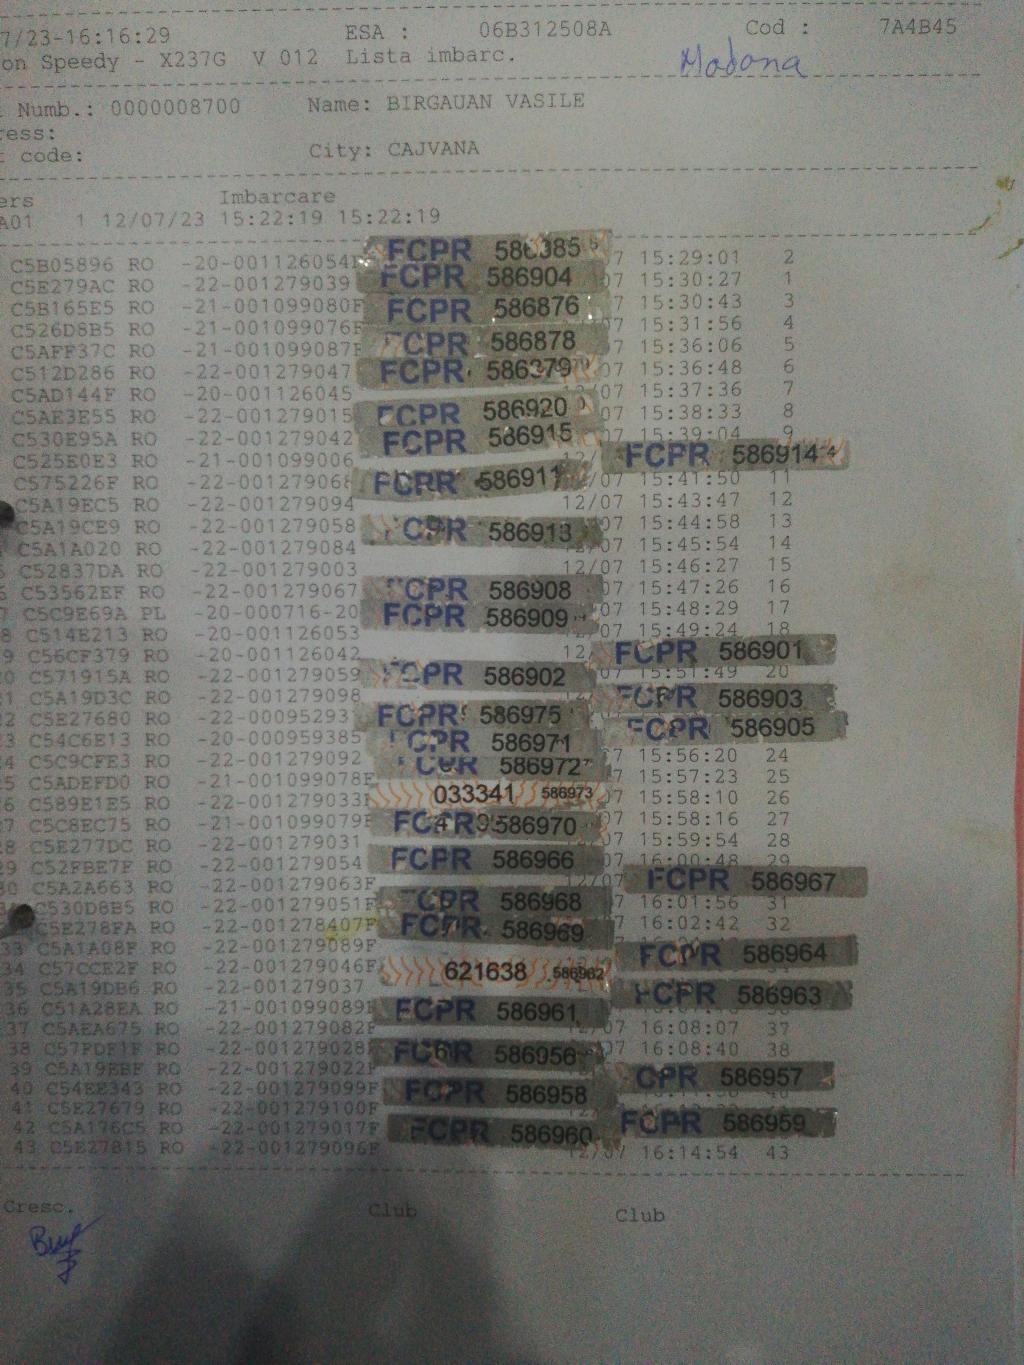 7/23-16:16:29 ESA : 06B312508A Cod : 7A4B45
on Speedy - X237G V 012 Lista imbarc. Madona
Numb.: 0000008700 Name: BIRGAUAN VASILE
ress:
code: City: CAJVANA
ers Imbarcare
A01 1 12/07/23 15:22:19 15:22:19
C5B05896 RO -20-001126054 FCPR 7 15:29:01 2
C5E279AC RO -22-001279039 FCPR 586904 07 15:30:27 1
C5B165E5 RO -21-001099080F FCPR 586876 07 15:30:43 3
C526D8B5 RO -21-001099076F 07 15:31:56 4
C5AFF37C RO -21-001099087F CPR 586878 07 15:36:06 5
C512D286 RO -22-001279047 FCPR 586379 07 15:36:48 6
C5AD144F RO -20-001126045 12/07 15:37:36 7
C5AE3E55 RO -22-001279015 FCPR 586920 07 15:38:33 8
C530E95A RO -22-001279042 FCPR 586915 07 15:39:04 9
C525E0E3 RO -21-001099006 12/ FCPR 586914
C575226F RO -22-001279068 FCPR 586911 /07 15:41:50 11
C5A19EC5 RO -22-001279094 12/07 15:43:47 12
C5A19CE9 RO -22-001279058 CPR 586913 07 15:44:58 13
C5A1A020 RO -22-001279084 12/07 15:45:54 14
C52837DA RO -22-001279003 12/07 15:46:27 15
C53562EF RO -22-001279067 CPR 586908 07 15:47:26 16
7 C5C9E69A PL -20-000716-20 FCPR 586909 07 15:48:29 17
8 C514E213 RO -20-001126053 07 15:49:24 18
9 C56CF379 RO -20-001126042 12 FCPR 586901
20 C571915A RO -22-001279059 CPR 586902 07 15:51:49 20
21 C5A19D3C RO -22-001279098 CPR 586903
22 C5E27680 RO -22-000952937 FCPR 586975 CPR 586905
23 C54C6E13 RO -20-000959385 CPR 586971
24 C5C9CFE3 RO -22-001279092 586972 07 15:56:20 24
25 C5ADEFD0 RO -21-001099078F 07 15:57:23 25
26 C589E1E5 RO -22-001279033 033341 586973 07 15:58:10 26
27 C5C8EC75 RO -21-001099079F 586970 07 15:58:16 27
28 C5E277DC RO -22-001279031 07 15:59:54 28
29 C52FBE7F RO -22-001279054 FCPR 586966 07 16:00:48 29
30 C5A2A663 RO -22-001279063F 12/07 FCPR 586967
C530D8B5 RO -22-001279051F CPR 586968 07 16:01:56 31
C5E278FA RO -22-001278407F FCPR 586969 07 16:02:42 32
33 C5A1A08F RO -22-001279089F FCPR 586964
34 C57CCE2F RO -22-001279046F 621638 586962
35 C5A19DB6 RO -22-001279037 FCPR 586963
36 C51A28EA RO -21-001099089 FCPR 586961
37 C5AEA675 RO -22-001279082F 12/07 16:08:07 37
38 C57FDF1F RO -22-001279028 586956 07 16:08:40 38
39 C5A19EBF RO -22-001279022F CPR 586957
40 C54EE343 RO -22-001279099F FCPR 586958
41 C5E27679 RO -22-001279100F FCPR 586959
42 C5A176C5 RO -22-001279017F FCPR 586960
43 C5E27815 RO -22-001279096F 12/07 16:14:54 43
Cresc. Club Club